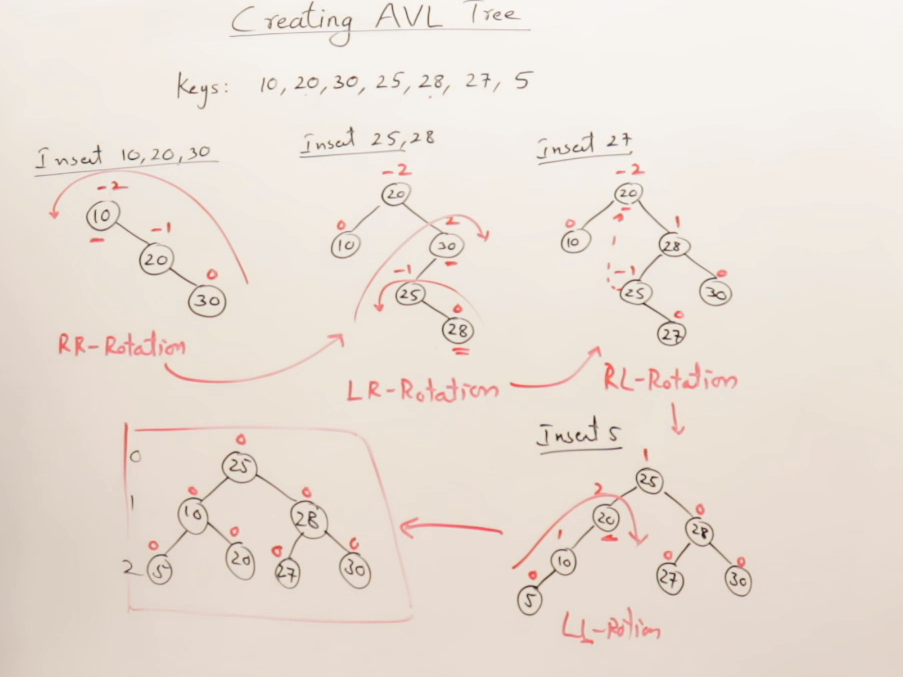 Creating AVL Tree
Keys: 10, 20, 30, 25, 28, 27, 5
Insert 10, 20, 30
-2
10
-1
20
0
30
RR-Rotation
Insert 25, 28
-2
20
0
10
2
30
-1
25
0
28
LR-Rotation
Insert 27
-2
20
0
10
1
28
-1
25
0
30
0
27
RL-Rotation
Insert 5
1
25
2
20
0
28
1
10
0
27
0
30
0
5
LL-Rotion
0
0
25
1
0
10
0
28
2
0
5
0
20
0
27
0
30